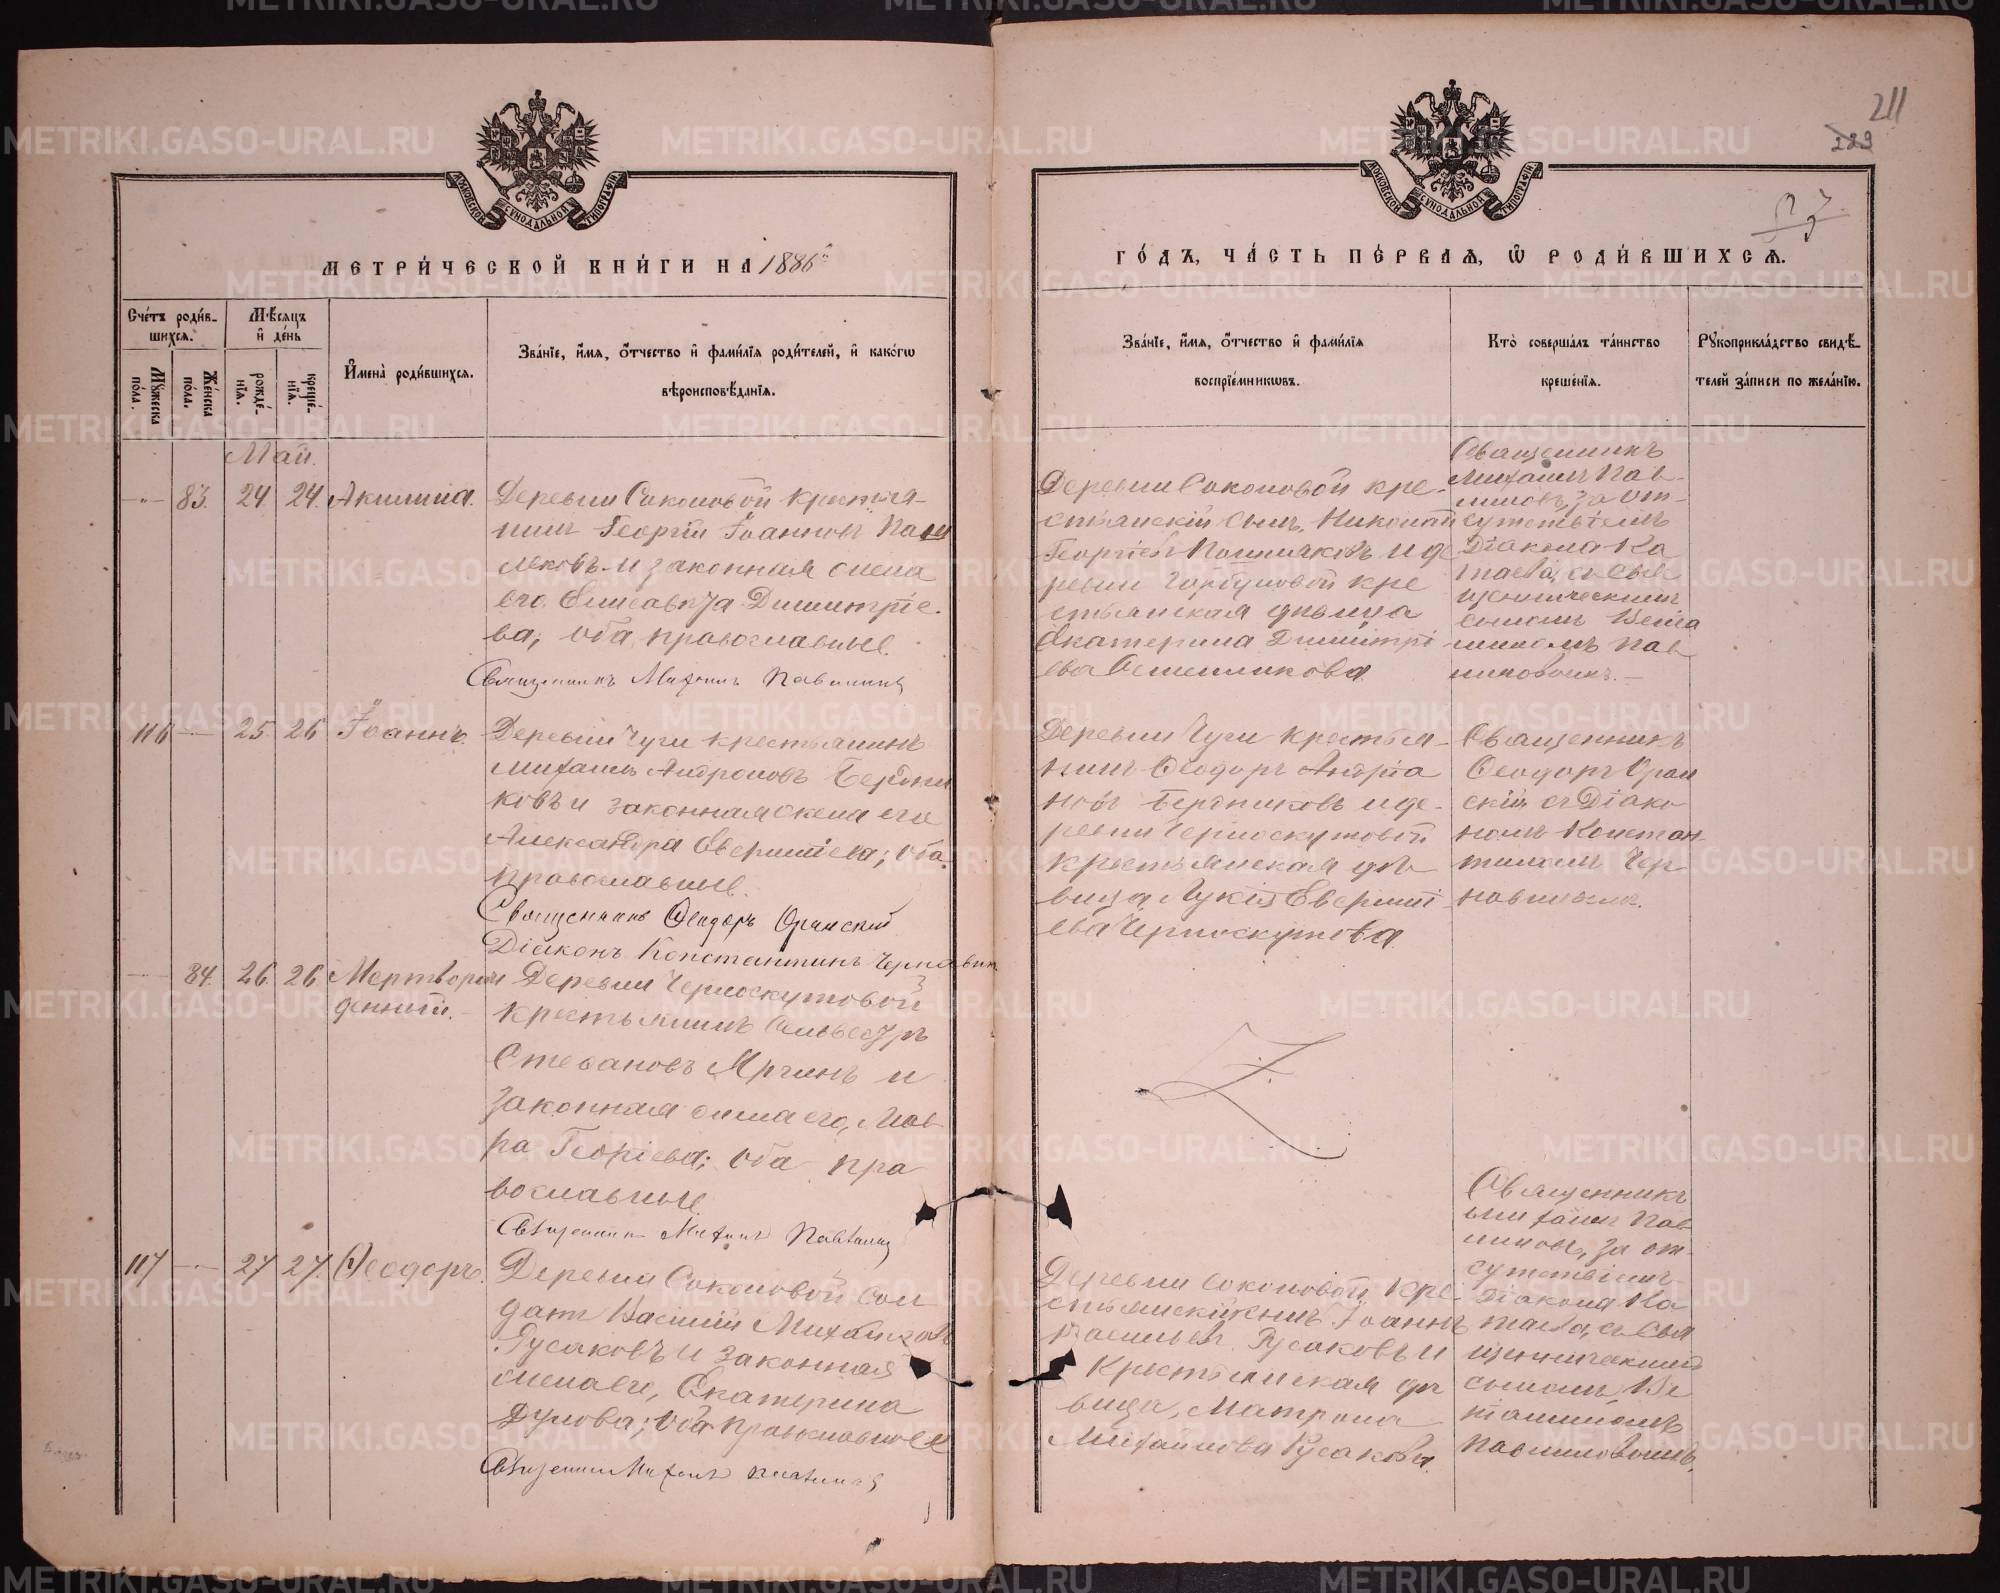 211
223
МОСКОВСКОЙ СѴНОДАЛЬНОЙ ТИПОГРАФІИ
МОСКОВСКОЙ СѴНОДАЛЬНОЙ ТИПОГРАФІИ
МЕТРИ́ЧЕСКОЙ КНИ́ГИ НА 1886й
ГО́ДЪ, ЧА́СТЬ ПЕ́РВАѦ, Ѽ РОДИ́ВШИХСѦ.
Сче́тъ роди́в-
шихсѧ.
Мꙋ́жеска по́ла.
Же́нска по́ла.
Мѣ́сѧцъ
и҆ де́нь
рожде́-
нїѧ.
креще́-
нїѧ.
И҆мена̀ роди́вшихсѧ.
Зва́нїе, и҆́мѧ, ѻ҆́тчество и҆ фами́лїѧ роди́телей, и҆ како́гѡ
вѣроисповѣ́данїѧ.
Зва́нїе, и҆́мѧ, ѻ҆́тчество и҆ фами́лїѧ
воспрїе́мникѡвъ.
Кто̀ соверша́лъ та́инство
креще́нїѧ.
Рꙋкоприкла́дство свидѣ́-
телей за́писи по жела́нїю.
Май.
83. 24 24. Акилина.
Деревни Соколовой крестья-
нинъ Георгій Іоанновъ
и законная жена
его Елисавета Димитріе-
ва; оба православные.
Священникъ Михаилъ Павлиновъ
Деревни Соколовой кре-
стьянскій сынъ Николай
Георгіевъ и де
ревни Горбуновой кре
стьянская дѣвица
Екатерина Димитрі
ева
Священникъ
Михаилъ Пав-
линовъ, за от-
сутствіемъ
Діакона Ка
таева, съ Свя
щенническимъ
сыномъ Веніа
миномъ Пав-
линовымъ.
116 25 26 Іоаннъ.
Деревни Чуги крестьянинъ
Михаилъ Андроновъ Бердни
ковъ и законная жена его
Александра Сверитіева; оба
православные.
Священникъ Ѳеодоръ Оранскій
Діаконъ Константинъ Чернавин
Деревни Чуги крестья-
нинъ Ѳеодоръ Андріа
новъ Бердниковъ и де-
ревни Черноскутовой
крестьянская дѣ-
вица Лукія Еверпті
ева Черноскутова
Священникъ
Ѳеодоръ Оран
скій съ Діако-
номъ Констан-
тиномъ Чер
навинымъ.
84. 26. 26 Мертворож
денный.
Деревни Черноскутовой
крестьянинъ Сильвестръ
Стефановъ и
законная жена его, Мав-
ра Георгіева; оба пра
вославные.
Священникъ Михаилъ Павлиновъ
117 27 27. Ѳеодоръ.
Деревни Соколовой сол
датъ Василій Михайловъ
Русаковъ и законная
жена его, Екатерина
оба православные
Священникъ Михаилъ Павлиновъ
Деревни Соколовой кре-
стьянскій сынъ Іоаннъ
Васильевъ Русаковъ и
Крестьянская дѣ
вица, Матрона
Михайлова Русакова.
Священникъ
Михаилъ Пав
линовъ, за от-
сутствіемъ
Діакона Ка
таева, съ Свя
щенническимъ
сыномъ Ве
ніаминомъ
Павлиновымъ.
METRIKI.GASO-URAL.RU